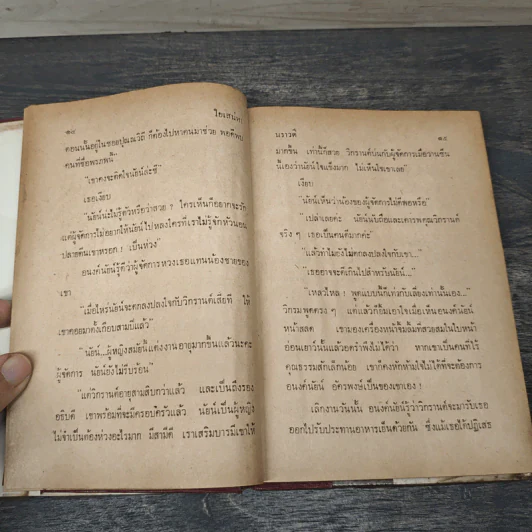 ๑๔
ใยเสน่หา
ตอนนั้นอยู่ในซอยปุณณวิถี ก็ต้องไปหาคนมาช่วย พอดีพบ
คนที่ชื่อพรภพนี้"
"เขาคงจะติดใจน้อนันล่ะซี"
เธอเงียบ
"น้อนันน่ะไม่รู้ตัวหรือว่าสวย ? ใครเห็นก็อยากจะรัก
แต่ผู้จัดการไม่อยากให้น้อนันไปหลงใครที่เราไม่รู้จักหัวนอน
ปลายตีนเขาหรอก ! เป็นห่วง"
อนงค์น้อนันรู้ดีว่าผู้จัดการหวงเธอแทนน้องชายของ
เขา
"เมื่อไหร่น้อนันจะตกลงปลงใจกับวิกรานต์เสียที ให้
เขาคอยมาตั้งเกือบสามปีแล้ว"
ผู้หญิงสมัยนี้แต่งงาน อายุมากขึ้นแล้วนะคะ
ผู้จัดการ
"แต่วิกรานต์อายุสามสิบกว่าแล้ว และเป็นถึงรอง
อธิบดี เขาพร้อมที่จะมีครอบครัวแล้ว น้อนันเป็นผู้หญิง
ไม่จำเป็นต้องห่วงอะไรมาก มีสามีดี เราเสริมบารมีเขาให้
นราวดี
๑๕
มากขึ้น เท่านี้ก็สวย วิกรานต์บ่นกับผู้จัดการเมื่อวานซืน
นี้เองว่าน้อนันใจแข็งมาก ไม่เห็นใจเขาเลย"
เงียบ
"น้อนันเห็นว่าน้องของผู้จัดการไม่ดีพอหรือ"
"เปล่าเลยค่ะ น้อนันนับถือและเคารพคุณวิกรานต์
จริง ๆ เธอเป็นคนดีมากค่ะ"
"แล้วทำไมยังไม่ตกลงปลงใจกับเขา..."
"เธออาจจะดีเกินไปสำหรับน้อนัน..."
"เหลวไหล ! พูดแบบนี้ก็เท่ากับเลี่ยงเท่านั้นเอง..."
วิกรมพูดตรง ๆ แต่แล้วก็ยิ้มเอาใจเมื่อเห็นอนงค์น้อนัน
หน้าสลด เขามองเครื่องหน้าจิ้มลิ้มที่สวยสมในใบหน้า
อ่อนเยาว์นั้นแล้วอดรำพึงไม่ได้ว่า หากเขาเป็นคนที่ไร้
คุณธรรมสักเล็กน้อย เขาก็คงหักห้ามใจไม่ได้ที่จะต้องการ
อนงค์น้อนัน อัครพงษ์เป็นของเขาเอง !
เลิกงานวันนั้น อนงค์น้อนันรู้ว่าวิกรานต์จะมารับเธอ
ออกไปรับประทานอาหารเย็นด้วยกัน ซึ่งแม้เธอได้ปฏิเสธ